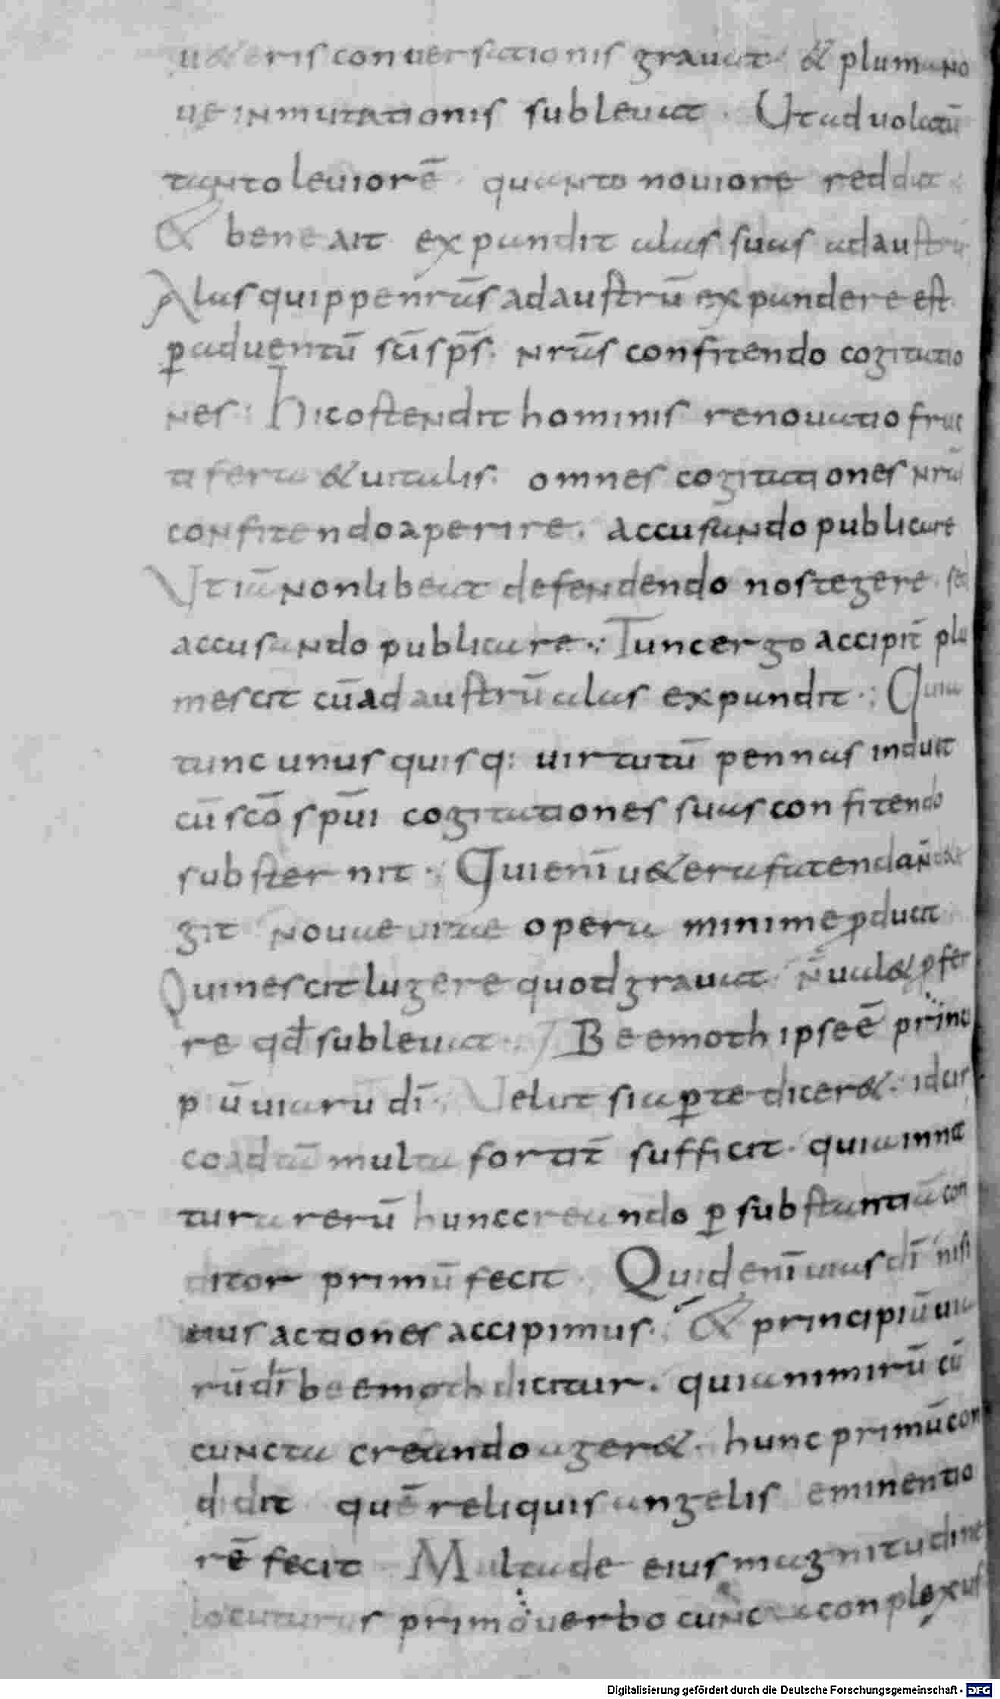 u&eris conuersationis grauat & pluma no
ue inmutationis subleuat. Ut ad uolatū
tanto leuiorē quanto nouiorē reddat.
& bene ait expandit alas suas ad austrū
Alas quippe nr̄as ad austrū expandere est.
ꝑ aduentū sc̄i sp̄s. nr̄as confitendo cogitatio
nes. Hic ostendit hominis renouatio fruc
tifera &uitalis. omnes cogitationes nr̄as
confitendo aperire. accusando publicare
Ut iā non libeat defendendo nos tegere. sed
accusando publicare. Tunc ergo accipit̄ plu
mescit cū ad austrū alas expandit. Quia
tunc unusquisq: uirtutū pennas induit
cū sc̄o sp̄ui cogitationes suas confitendo
substernit. Qui enī u&era fatendo n̄ de
git nouae uitae opera minime ꝑducit
Qui nescit lugere quod grauat. n̄ ual& ꝓfer
re qđ subleuat. Beemoth ipse ē princi
piū uiarū dī. Velut si aꝑte dicer&. idcir
co ad tā multa fortit̄ sufficit. quia in na
tura rerū hunc creando ꝑ substantiā con
ditor primū fecit. Quid enī uias dī nisi
eius actiones accipimus. & principiū uia
rū dī beemoth dicitur. quia nimirū cū
cuncta creando ager&. hunc primū con
didit quē reliquis angelis eminentio
rē fecit Multa de eius magnitudine
locuturus primo uerbo cuncta complexus